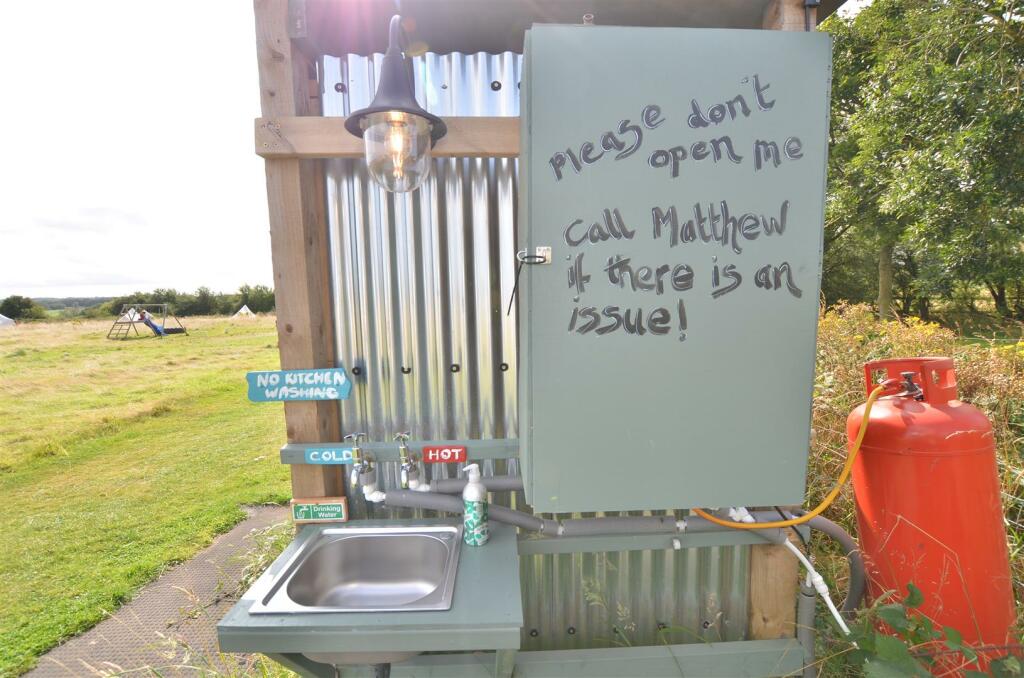 please don't
open me
Call Matthew
if there is an
issue!
NO KITCHEN
WASHING
COLD
HOT
Drinking
Water